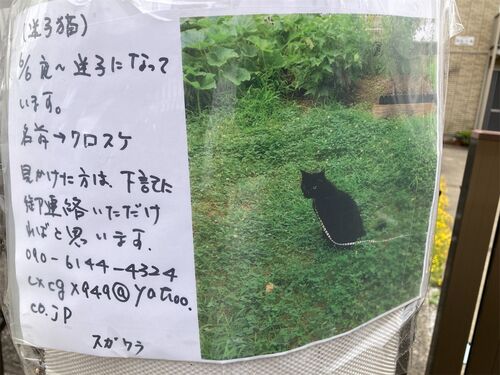 (迷子猫)
6/6 夜〜 迷子になって
います。
名前→クロスケ
見かけた方は、下記に
御連絡いただけ
ればと思います.
090-6144-4324
cxcgx949@yahoo.
co.jp
スガワラ